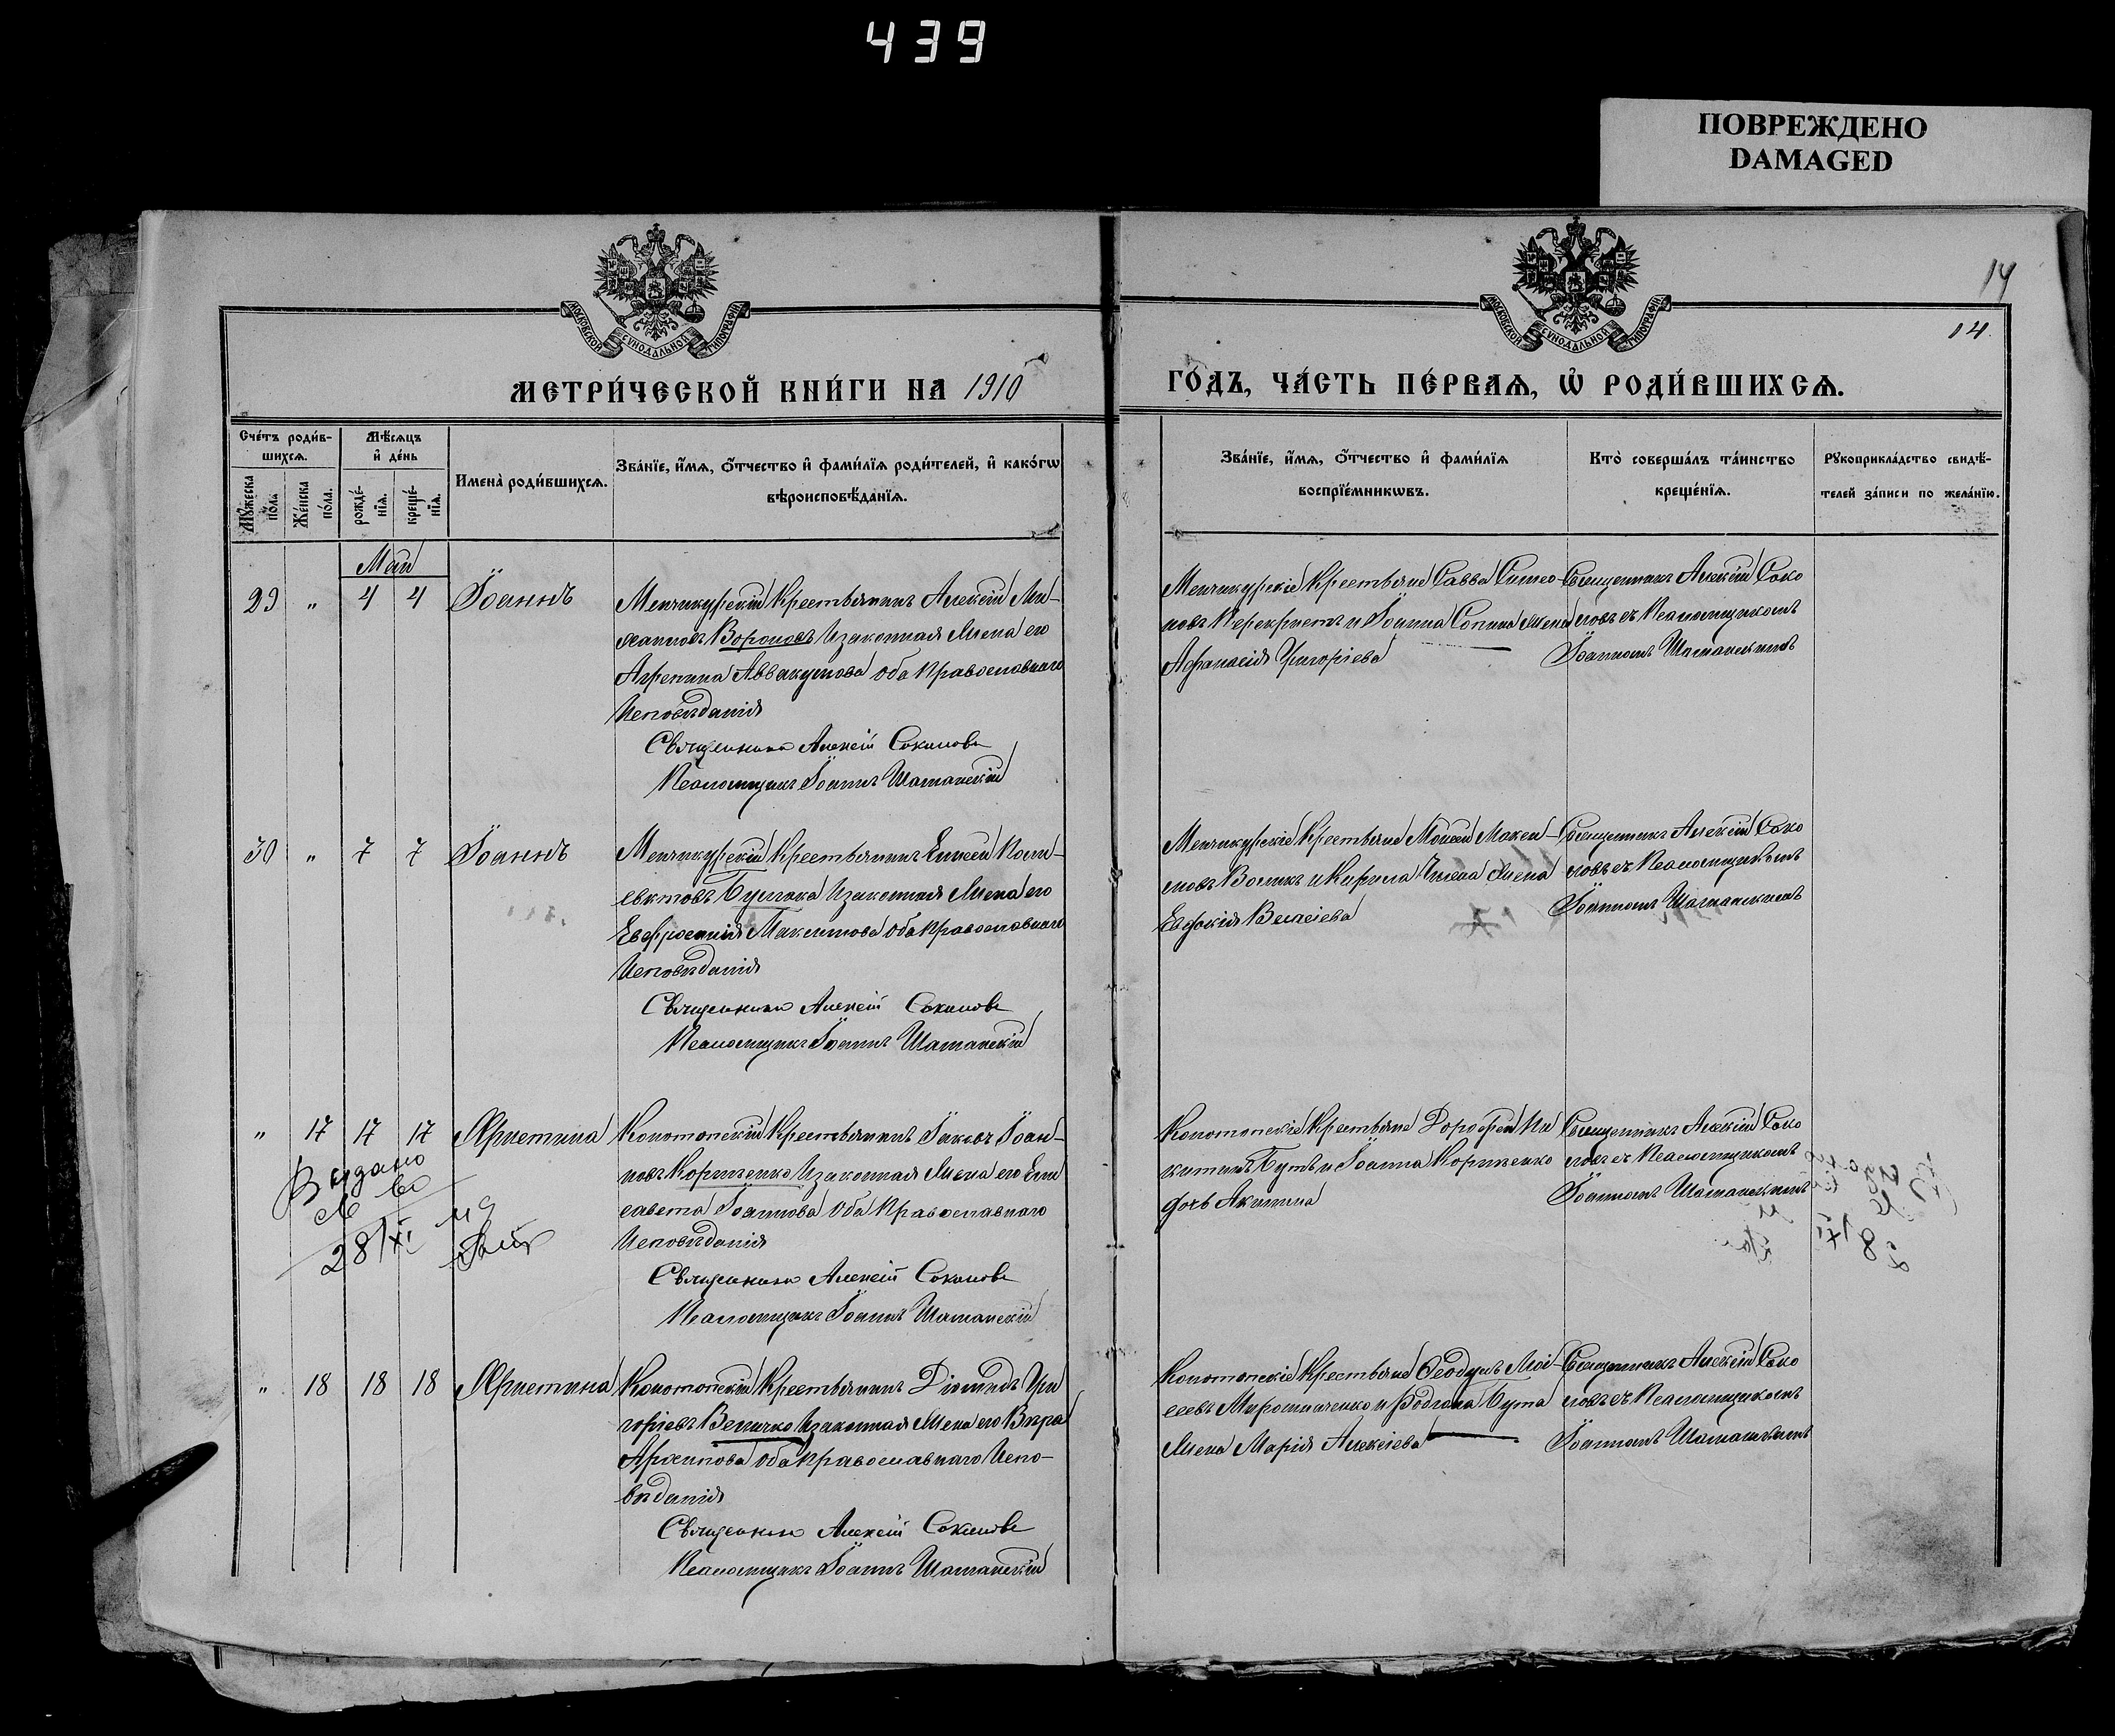 439
ПОВРЕЖДЕНО
DAMAGED
МОСКОВСКОЙ СУНОДАЛЬНОЙ ТИПОГРАФІИ
МОСКОВСКОЙ СУНОДАЛЬНОЙ ТИПОГРАФІИ
14
14
МЕТРИ́ЧЕСКОЙ КНИ́ГИ НА 1910
ГО́ДЪ, ЧА́СТЬ ПЕ́РВАѦ, Ѡ҆ РОДИ́ВШИХСѦ.
Сче́тъ роди́в-
шихсѧ.
Мꙋ́жеска по́ла
Же́нска по́ла.
Мѣ́сѧцъ
и҆ де́нь
рожде́-
нїѧ.
креще́-
нїѧ.
Имена̀ роди́вшихсѧ.
Зва́нїе, и҆́мѧ, ѻ҆́тчество и҆ фами́лїѧ роди́телей, и҆ како́гѡ
вѣроисповѣ́данїѧ.
Зва́нїе, и҆́мѧ, ѻ҆́тчество и҆ фами́лїѧ
воспрїе́мникѡвъ.
Кто̀ соверша́лъ та́инство
креще́нїѧ.
Рꙋкоприкла́дство свидѣ́-
телей за́писи по жела́нїю.
Май
29 " 4 4 Іоаннъ
Менчикурскій Крестьянинъ Алексій Ми-
хаиловъ Вороновъ Изаконная Жена его
Агрепина Аввакумова оба Православнаго
Исповѣданія
Священникъ Алексій Соколовъ
Псаломщикъ Іоаннъ Шатанскій
Менчикурскіе Крестьяне Савва Симео-
новъ Перекрестъ и Іоанна Сопина жена
Афанасія Григоріева
Священникъ Алексій Соко
ловъ съ Псаломщикомъ
Іоанномъ Шатанскимъ
30 " 7 7 Іоаннъ
Менчикурскій Крестьянинъ Елисей Поли-
евктовъ Буглака Изаконная Жена его
Евфросинія Максимова оба Православнаго
Исповѣданія
Священникъ Алексій Соколовъ
Псаломщикъ Іоаннъ Шатанскій
Менчикурскіе Крестьяне Моисей Макси-
мовъ Воликъ и Кирила Жена
Евдокія Власіева
Священникъ Алексій Соко
ловъ съ Псаломщикомъ
Іоанномъ Шатанскимъ
" 17 17 17 Христина
Выдано
св во
28/XI
Конотопскій Крестьянинъ Іаковъ Іоан-
новъ Корниенко Изаконная Жена его Ели
савета Іоаннова Оба Православнаго
Исповѣданія
Священникъ Алексій Соколовъ
Псаломщикъ Іоаннъ Шатанскій
Конотопскіе Крестьяне Дорофей Ни
китинъ Бутъ и Іоанна Корниенко
дочь Акилина
Священникъ Алексій Соко
ловъ съ Псаломщикомъ
Іоанномъ Шатанскимъ
" 18 18 18 Христина
Конотопскій Крестьянинъ Діомидъ Гри
горіевъ Величко Изаконная Жена его Вѣра
Архипова оба Православнаго Испо-
вѣданія
Священникъ Алексій Соколовъ
Псаломщикъ Іоаннъ Шатанскій
Конотопскіе Крестьяне Феодулъ Мой-
сеевъ Мирошниченко и Родіона Бута
Жена Марія Алексіева
Священникъ Алексій Соко
ловъ съ Псаломщикомъ
Іоанномъ Шатанскимъ